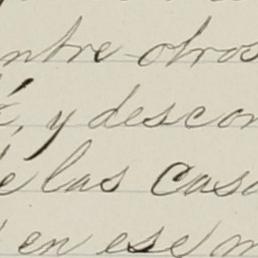 entre otros
y descon
de las casa
en ese m